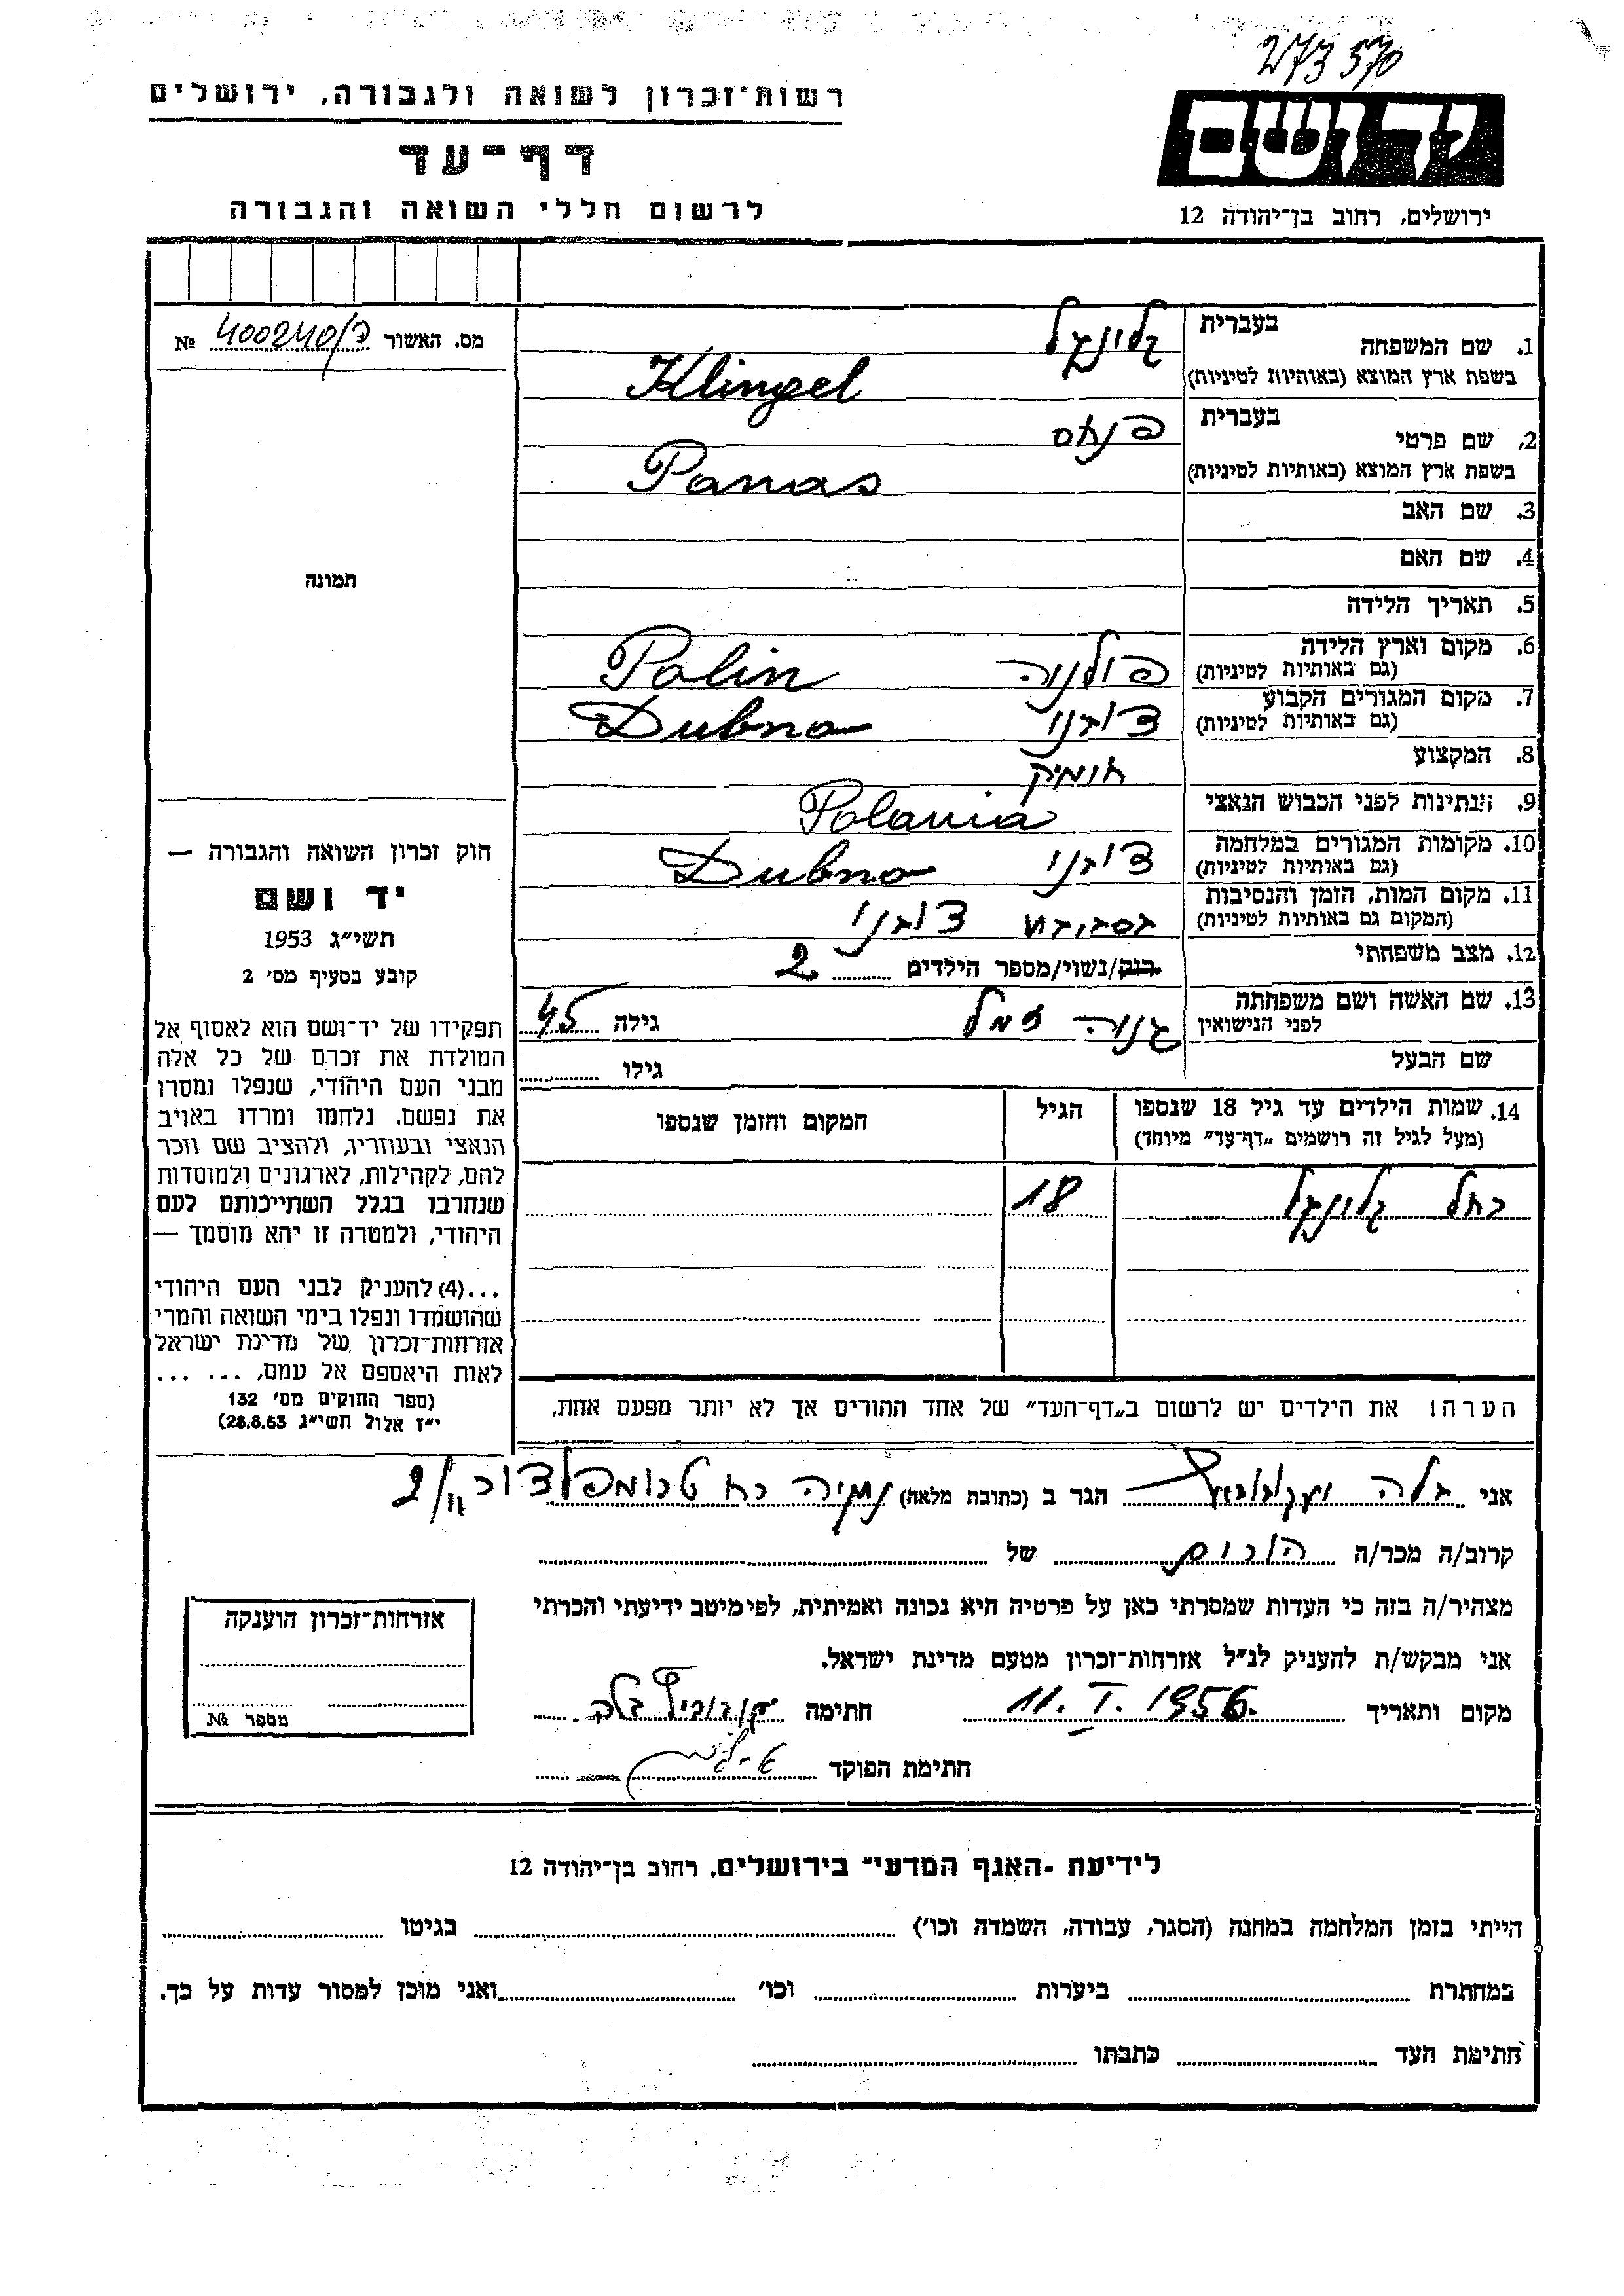 273570
רשות־זכרון לשואה ולגבורה, ירושלים
יד ושם
דף־עד
לרשום חללי השואה והגבורה
ירושלים, רחוב בן־יהודה 12
מס. האשור 400240/ק №
1. שם המשפחה בעברית קלינגל
בשפת ארץ המוצא (באותיות לטיניות) Klingel
2. שם פרטי בעברית פנאס
בשפת ארץ המוצא (באותיות לטיניות) Panas
3. שם האב
4. שם האם
תמונה
5. תאריך הלידה
6. מקום וארץ הלידה פולניה Polin
(גם באותיות לטיניות)
7. מקום המגורים הקבוע דובנו Dubno
(גם באותיות לטיניות)
8. המקצוע
9. הנתינות לפני הכבוש הנאצי Polania
10. מקומות המגורים במלחמה דובנו Dubno
(גם באותיות לטיניות)
11. מקום המות, הזמן והנסיבות בסביבת דובנו
(המקום גם באותיות לטיניות)
12. מצב משפחתי רוק/נשוי/מספר הילדים 2
13. שם האשה ושם משפחתה גילה 45
לפני הנישואין
שם הבעל גילו
14. שמות הילדים עד גיל 18 שנספו הגיל המקום והזמן שנספו
(מעל לגיל זה רושמים „דף־עד” מיוחד)
רחל קלינגל 18
הערה! את הילדים יש לרשום ב„דף־העד” של אחד ההורים אך לא יותר מפעם אחת.
חוק זכרון השואה והגבורה —
יד ושם
תשי״ג 1953
קובע בסעיף מס׳ 2
תפקידו של יד־ושם הוא לאסוף אל
המולדת את זכרם של כל אלה
מבני העם היהודי, שנפלו ומסרו
את נפשם. נלחמו ומרדו באויב
הנאצי ובעוזריו, ולהציב שם וזכר
להם, לקהילות, לארגונים ולמוסדות
שנחרבו בגלל השתייכותם לעם
היהודי, ולמטרה זו יהא מוסמך —
...(4) להעניק לבני העם היהודי
שהושמדו ונפלו בימי השואה והמרי
אזרחות־זכרון של מדינת ישראל
לאות היאספם אל עמם, ... ...
(ספר החוקים מס׳ 132
י״ז אלול תשי״ג 28.8.53)
אני בלה הגר ב (כתובת מלאה) נתניה רח טרומפלדור 2/11
קרוב/ה מכר/ה של
מצהיר/ה בזה כי העדות שמסרתי כאן על פרטיה היא נכונה ואמיתית, לפי מיטב ידיעתי והכרתי
אני מבקש/ת להעניק לנ״ל אזרחות־זכרון מטעם מדינת ישראל.
מקום ותאריך 11. I. 1956. חתימה בלה
חתימת הפוקד
אזרחות־זכרון הוענקה
מספר №
לידיעת ״האגף המדעי״ בירושלים, רחוב בן־יהודה 12
הייתי בזמן המלחמה במחנה (הסגר, עבודה, השמדה וכו׳) בגיטו
במחתרת ביערות וכו׳ ואני מוכן למסור עדות על כך.
חתימת העד כתבתו